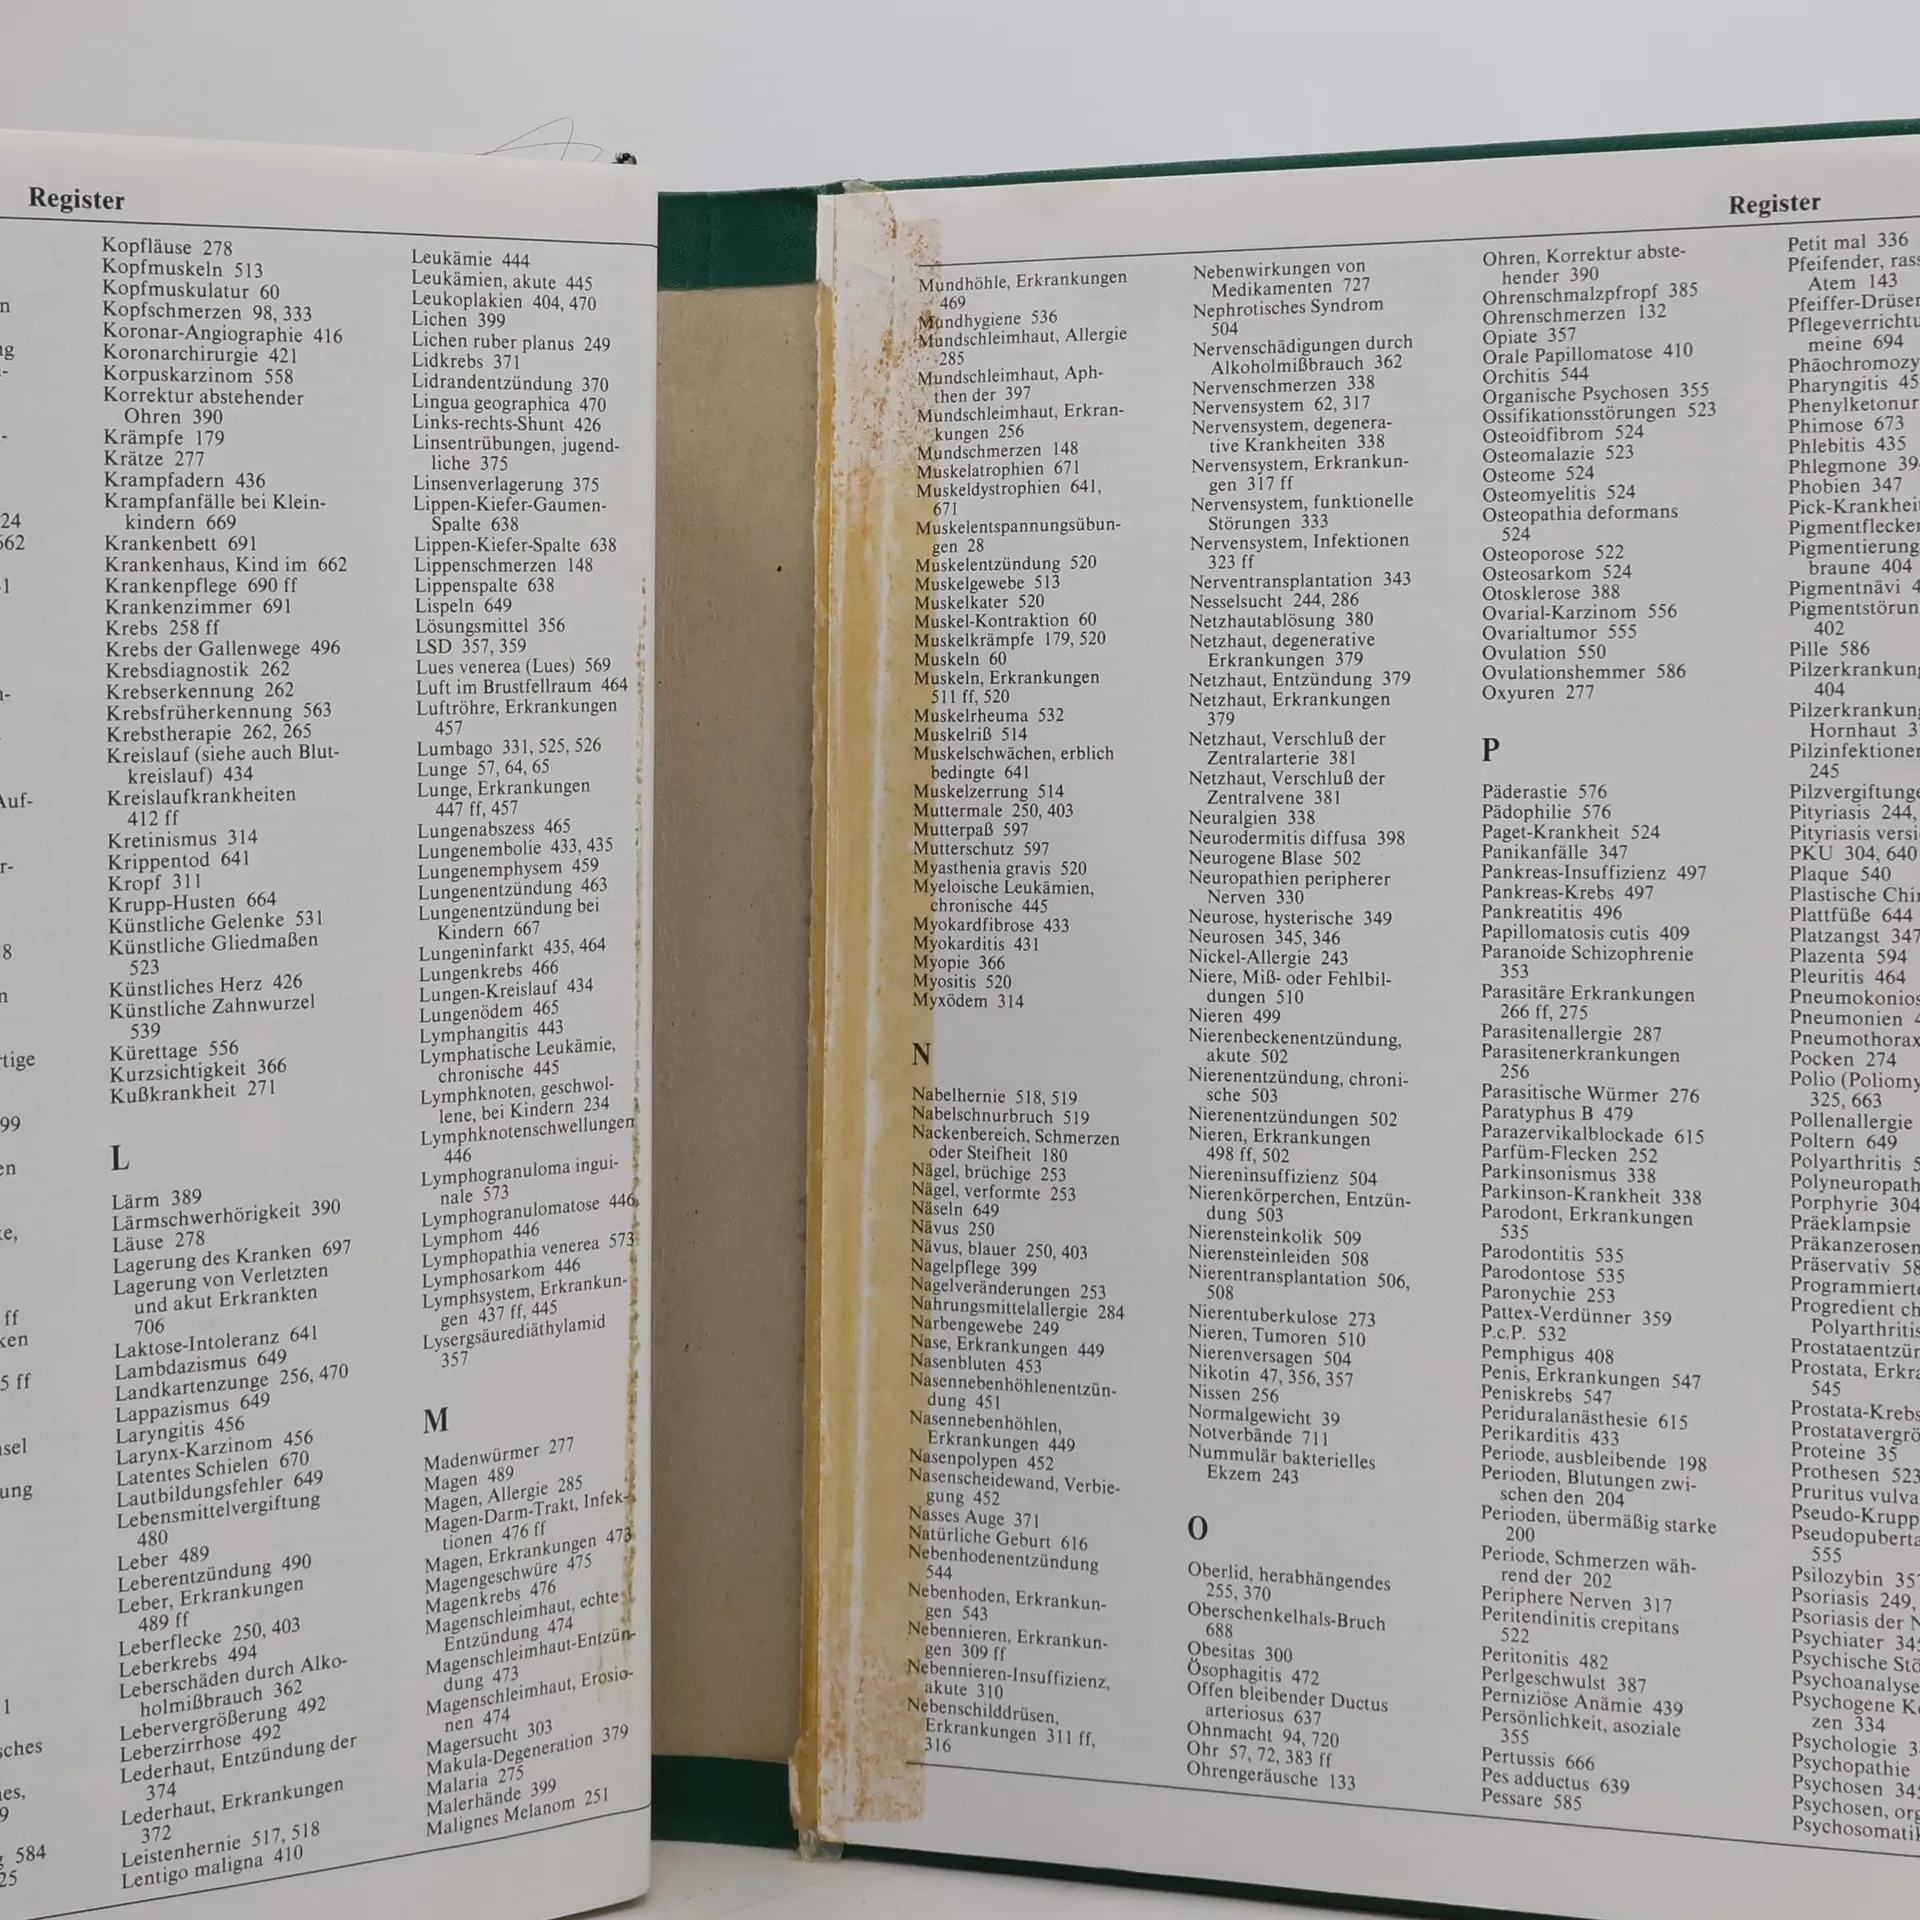 Register
Kopfläuse 278
Kopfmuskeln 513
Kopfmuskulatur 60
Kopfschmerzen 98, 333
Koronar-Angiographie 416
Koronarchirurgie 421
Korpuskarzinom 558
Korrektur abstehender
Ohren 390
Krämpfe 179
Krätze 277
Krampfadern 436
Krampfanfälle bei Klein-
kindern 669
Krankenbett 691
Krankenhaus, Kind im 662
Krankenpflege 690 ff
Krankenzimmer 691
Krebs 258 ff
Krebs der Gallenwege 496
Krebsdiagnostik 262
Krebserkennung 262
Krebsfrüherkennung 563
Krebstherapie 262, 265
Kreislauf (siehe auch Blut-
kreislauf) 434
Kreislaufkrankheiten
412 ff
Kretinismus 314
Krippentod 641
Kropf 311
Krupp-Husten 664
Künstliche Gelenke 531
Künstliche Gliedmaßen
523
Künstliches Herz 426
Künstliche Zahnwurzel
539
Kürettage 556
Kurzsichtigkeit 366
Kußkrankheit 271
L
Lärm 389
Lärmschwerhörigkeit 390
Läuse 278
Lagerung des Kranken 697
Lagerung von Verletzten
und akut Erkrankten
706
Laktose-Intoleranz 641
Lambdazismus 649
Landkartenzunge 256, 470
Lappazismus 649
Laryngitis 456
Larynx-Karzinom 456
Latentes Schielen 670
Lautbildungsfehler 649
Lebensmittelvergiftung
480
Leber 489
Leberentzündung 490
Leber, Erkrankungen
489 ff
Leberflecke 250, 403
Leberkrebs 494
Leberschäden durch Alko-
holmißbrauch 362
Lebervergrößerung 492
Leberzirrhose 492
Lederhaut, Entzündung der
374
Lederhaut, Erkrankungen
372
Leistenhernie 517, 518
Lentigo maligna 410
Leukämie 444
Leukämien, akute 445
Leukoplakien 404, 470
Lichen 399
Lichen ruber planus 249
Lidkrebs 371
Lidrandentzündung 370
Lingua geographica 470
Links-rechts-Shunt 426
Linsentrübungen, jugend-
liche 375
Linsenverlagerung 375
Lippen-Kiefer-Gaumen-
Spalte 638
Lippen-Kiefer-Spalte 638
Lippenschmerzen 148
Lippenspalte 638
Lispeln 649
Lösungsmittel 356
LSD 357, 359
Lues venerea (Lues) 569
Luft im Brustfellraum 464
Luftröhre, Erkrankungen
457
Lumbago 331, 525, 526
Lunge 57, 64, 65
Lunge, Erkrankungen
447 ff, 457
Lungenabszess 465
Lungenembolie 433, 435
Lungenemphysem 459
Lungenentzündung 463
Lungenentzündung bei
Kindern 667
Lungeninfarkt 435, 464
Lungenkrebs 466
Lungen-Kreislauf 434
Lungenödem 465
Lymphangitis 443
Lymphatische Leukämie,
chronische 445
Lymphknoten, geschwol-
lene, bei Kindern 234
Lymphknotenschwellungen
446
Lymphogranuloma ingui-
nale 573
Lymphogranulomatose 446
Lymphom 446
Lymphopathia venerea 573
Lymphosarkom 446
Lymphsystem, Erkrankun-
gen 437 ff, 445
Lysergsäurediäthylamid
357
M
Madenwürmer 277
Magen 489
Magen, Allergie 285
Magen-Darm-Trakt, Infek-
tionen 476 ff
Magen, Erkrankungen 473
Magengeschwüre 475
Magenkrebs 476
Magenschleimhaut, echte
Entzündung 474
Magenschleimhaut-Entzün-
dung 473
Magenschleimhaut, Erosio-
nen 474
Magersucht 303
Makula-Degeneration 379
Malaria 275
Malerhände 399
Malignes Melanom 251
Register
Mundhöhle, Erkrankungen
469
Mundhygiene 536
Mundschleimhaut, Allergie
285
Mundschleimhaut, Aph-
then der 397
Mundschleimhaut, Erkran-
kungen 256
Mundschmerzen 148
Muskelatrophien 671
Muskeldystrophien 641,
671
Muskelentspannungsübun-
gen 28
Muskelentzündung 520
Muskelgewebe 513
Muskelkater 520
Muskel-Kontraktion 60
Muskelkrämpfe 179, 520
Muskeln 60
Muskeln, Erkrankungen
511 ff, 520
Muskelrheuma 532
Muskelriß 514
Muskelschwächen, erblich
bedingte 641
Muskelzerrung 514
Muttermale 250, 403
Mutterpaß 597
Mutterschutz 597
Myasthenia gravis 520
Myeloische Leukämien,
chronische 445
Myokardfibrose 433
Myokarditis 431
Myopie 366
Myositis 520
Myxödem 314
N
Nabelhernie 518, 519
Nabelschnurbruch 519
Nackenbereich, Schmerzen
oder Steifheit 180
Nägel, brüchige 253
Nägel, verformte 253
Näseln 649
Nävus 250
Nävus, blauer 250, 403
Nagelpflege 399
Nagelveränderungen 253
Nahrungsmittelallergie 284
Narbengewebe 249
Nase, Erkrankungen 449
Nasenbluten 453
Nasennebenhöhlenentzün-
dung 451
Nasennebenhöhlen,
Erkrankungen 449
Nasenpolypen 452
Nasenscheidewand, Verbie-
gung 452
Nasses Auge 371
Natürliche Geburt 616
Nebenhodenentzündung
544
Nebenhoden, Erkrankun-
gen 543
Nebennieren, Erkrankun-
gen 309 ff
Nebennieren-Insuffizienz,
akute 310
Nebenschilddrüsen,
Erkrankungen 311 ff,
316
Nebenwirkungen von
Medikamenten 727
Nephrotisches Syndrom
504
Nervenschädigungen durch
Alkoholmißbrauch 362
Nervenschmerzen 338
Nervensystem 62, 317
Nervensystem, degenera-
tive Krankheiten 338
Nervensystem, Erkrankun-
gen 317 ff
Nervensystem, funktionelle
Störungen 333
Nervensystem, Infektionen
323 ff
Nerventransplantation 343
Nesselsucht 244, 286
Netzhautablösung 380
Netzhaut, degenerative
Erkrankungen 379
Netzhaut, Entzündung 379
Netzhaut, Erkrankungen
379
Netzhaut, Verschluß der
Zentralarterie 381
Netzhaut, Verschluß der
Zentralvene 381
Neuralgien 338
Neurodermitis diffusa 398
Neurogene Blase 502
Neuropathien peripherer
Nerven 330
Neurose, hysterische 349
Neurosen 345, 346
Nickel-Allergie 243
Niere, Miß- oder Fehlbil-
dungen 510
Nieren 499
Nierenbeckenentzündung,
akute 502
Nierenentzündung, chroni-
sche 503
Nierenentzündungen 502
Nieren, Erkrankungen
498 ff, 502
Niereninsuffizienz 504
Nierenkörperchen, Entzün-
dung 503
Nierensteinkolik 509
Nierensteinleiden 508
Nierentransplantation 506,
508
Nierentuberkulose 273
Nieren, Tumoren 510
Nierenversagen 504
Nikotin 47, 356, 357
Nissen 256
Normalgewicht 39
Notverbände 711
Nummulär bakterielles
Ekzem 243
O
Oberlid, herabhängendes
255, 370
Oberschenkelhals-Bruch
688
Obesitas 300
Ösophagitis 472
Offen bleibender Ductus
arteriosus 637
Ohnmacht 94, 720
Ohr 57, 72, 383 ff
Ohrengeräusche 133
Ohren, Korrektur abste-
hender 390
Ohrenschmalzpfropf 385
Ohrenschmerzen 132
Opiate 357
Orale Papillomatose 410
Orchitis 544
Organische Psychosen 355
Ossifikationsstörungen 523
Osteoidfibrom 524
Osteomalazie 523
Osteome 524
Osteomyelitis 524
Osteopathia deformans
524
Osteoporose 522
Osteosarkom 524
Otosklerose 388
Ovarial-Karzinom 556
Ovarialtumor 555
Ovulation 550
Ovulationshemmer 586
Oxyuren 277
P
Päderastie 576
Pädophilie 576
Paget-Krankheit 524
Panikanfälle 347
Pankreas-Insuffizienz 497
Pankreas-Krebs 497
Pankreatitis 496
Papillomatosis cutis 409
Paranoide Schizophrenie
353
Parasitäre Erkrankungen
266 ff, 275
Parasitenallergie 287
Parasitenerkrankungen
256
Parasitische Würmer 276
Paratyphus B 479
Parazervikalblockade 615
Parfüm-Flecken 252
Parkinsonismus 338
Parkinson-Krankheit 338
Parodont, Erkrankungen
535
Parodontitis 535
Parodontose 535
Paronychie 253
Pattex-Verdünner 359
P.c.P. 532
Pemphigus 408
Penis, Erkrankungen 547
Peniskrebs 547
Periduralanästhesie 615
Perikarditis 433
Periode, ausbleibende 198
Perioden, Blutungen zwi-
schen den 204
Perioden, übermäßig starke
200
Periode, Schmerzen wäh-
rend der 202
Periphere Nerven 317
Peritendinitis crepitans
522
Peritonitis 482
Perlgeschwulst 387
Perniziöse Anämie 439
Persönlichkeit, asoziale
355
Pertussis 666
Pes adductus 639
Pessare 585
Petit mal 336
Pfeifender, rass
Atem 143
Pfeiffer-Drüsen
Pflegeverrichtu
meine 694
Phäochromozy
Pharyngitis 45
Phenylketonur
Phimose 673
Phlebitis 435
Phlegmone 39
Phobien 347
Pick-Krankheit
Pigmentflecken
Pigmentierung
braune 404
Pigmentnävi 4
Pigmentstörun
402
Pille 586
Pilzerkrankung
404
Pilzerkrankung
Hornhaut 3
Pilzinfektionen
245
Pilzvergiftunge
Pityriasis 244,
Pityriasis versi
PKU 304, 640
Plaque 540
Plastische Chir
Plattfüße 644
Platzangst 347
Plazenta 594
Pleuritis 464
Pneumokonios
Pneumonien 4
Pneumothorax
Pocken 274
Polio (Poliomy
325, 663
Pollenallergie
Poltern 649
Polyarthritis 5
Polyneuropath
Porphyrie 304
Präeklampsie
Präkanzerosen
Präservativ 58
Programmierte
Progredient ch
Polyarthritis
Prostataentzün
Prostata, Erkra
545
Prostata-Krebs
Prostatavergrö
Proteine 35
Prothesen 523
Pruritus vulva
Pseudo-Krupp
Pseudopuberta
555
Psilozybin 357
Psoriasis 249,
Psoriasis der N
Psychiater 345
Psychische Stö
Psychoanalyse
Psychogene K
zen 334
Psychologie 3
Psychopathie
Psychosen 345
Psychosen, org
Psychosomatik